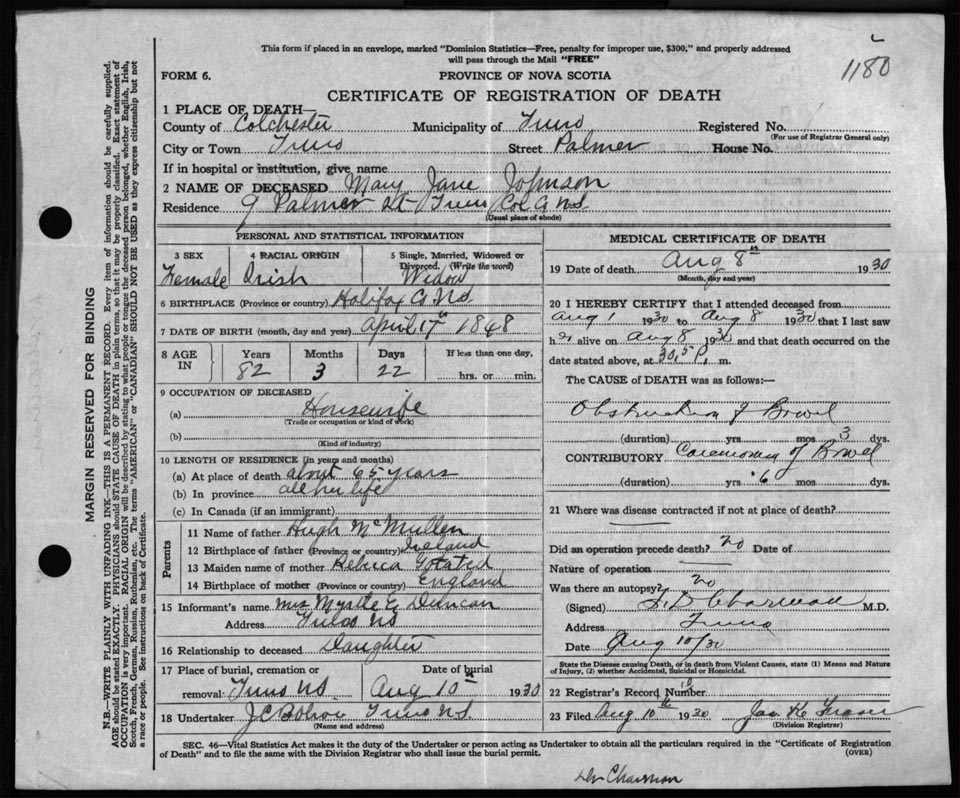 This form if placed in an envelope, marked "Dominion Statistics—Free, penalty for improper use, $300," and properly addressed
will pass through the Mail "FREE"
1180
FORM 6.
PROVINCE OF NOVA SCOTIA
CERTIFICATE OF REGISTRATION OF DEATH
1 PLACE OF DEATH—
County of Colchester Municipality of Truro Registered No.
(For use of Registrar General only)
City or Town Truro Street Palmer House No.
If in hospital or institution, give name
2 NAME OF DECEASED Mary Jane Johnson
Residence 9 Palmer St Truro Col Co NS
(Usual place of abode)
PERSONAL AND STATISTICAL INFORMATION
3 SEX 4 RACIAL ORIGIN 5 Single, Married, Widowed or
Divorced. (Write the word)
Female Irish Widow
6 BIRTHPLACE (Province or country) Halifax Co NS
7 DATE OF BIRTH (month, day and year) April 17th 1848
8 AGE IN Years Months Days If less than one day,
82 3 22 hrs. or min.
9 OCCUPATION OF DECEASED
(a) Housewife
(Trade or occupation or kind of work)
(b)
(Kind of industry)
10 LENGTH OF RESIDENCE (in years and months)
(a) At place of death about 65 years
(b) In province all her life
(c) In Canada (if an immigrant)
Parents
11 Name of father Hugh McMullen
12 Birthplace of father (Province or country) Ireland
13 Maiden name of mother Rebeca
14 Birthplace of mother (Province or country) England
15 Informant's name Mrs Myrtle E Duncan
Address Truro NS
16 Relationship to deceased Daughter
17 Place of burial, cremation or Date of burial
removal: Truro NS Aug 10th 1930
18 Undertaker J C Truro N.S.
(Name and address)
MEDICAL CERTIFICATE OF DEATH
19 Date of death Aug 8th 1930
(Month, day and year)
20 I HEREBY CERTIFY that I attended deceased from
Aug 1 1930 to Aug 8 1930 that I last saw
her alive on Aug 8 1930 and that death occurred on the
date stated above, at m.
The CAUSE of DEATH was as follows:—
Obstruction of Bowel
(duration) yrs. mos. 3 dys.
CONTRIBUTORY of Bowel
(duration) yrs. 6 mos. dys.
21 Where was disease contracted if not at place of death?
Did an operation precede death? no Date of
Nature of operation
Was there an autopsy? no
(Signed) Charman M.D.
Address Truro
Date Aug 10/30
State the Disease causing Death, or in death from Violent Causes, state (1) Means and Nature
of Injury, (2) whether Accidental, Suicidal or Homicidal.
22 Registrar's Record Number
23 Filed Aug 10th 1930 Fraser
(Division Registrar)
SEC. 46—Vital Statistics Act makes it the duty of the Undertaker or person acting as Undertaker to obtain all the particulars required in the "Certificate of Registration
of Death" and to file the same with the Division Registrar who shall issue the burial permit. (OVER)
Dr Charman
MARGIN RESERVED FOR BINDING
N.B.—WRITE PLAINLY WITH UNFADING INK—THIS IS A PERMANENT RECORD. Every item of information should be carefully supplied.
AGE should be stated EXACTLY. PHYSICIANS should STATE CAUSE OF DEATH in plain terms, so that it may be properly classified. Exact statement of
OCCUPATION is very important. RACIAL ORIGIN will be described by stating to what people or tongue the deceased person belonged, whether English, Irish,
Scotch, French, German, Russian, Ruthenian, etc. The terms "AMERICAN" or "CANADIAN" SHOULD NOT BE USED as they express citizenship but not
a race or people. See instructions on back of Certificate.